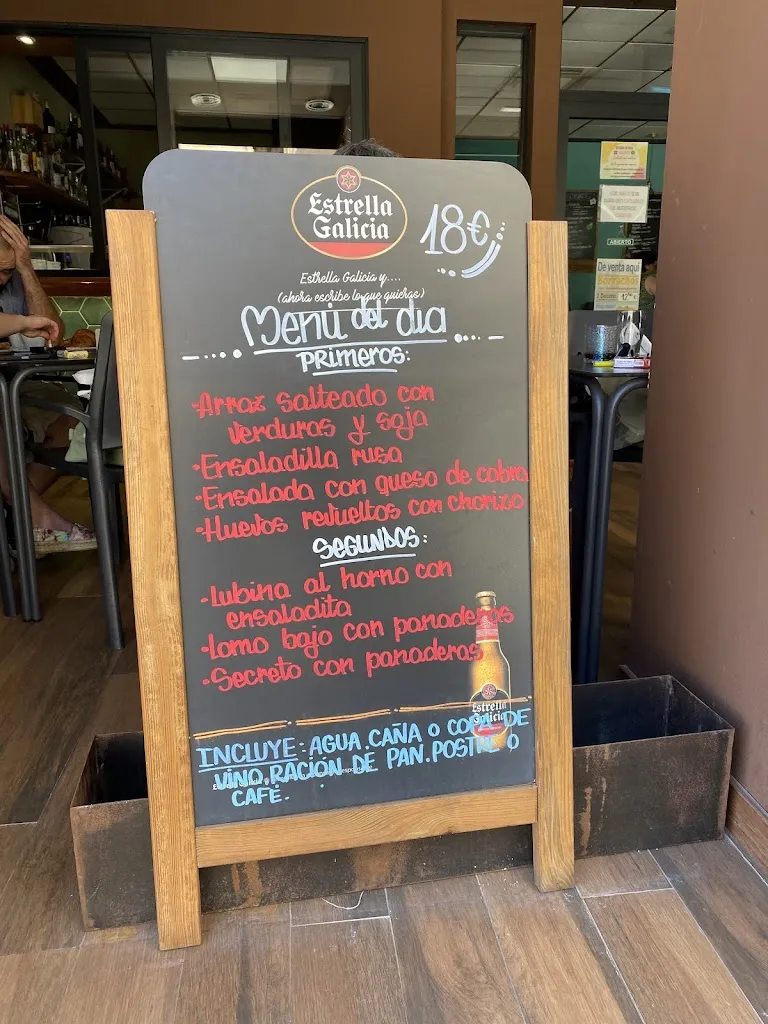 Estrella
Galicia
18€
Estrella Galicia y....
(ahora escribe lo que quieras)
Menú del día
PRIMEROS:
·Arroz salteado con
verduras y soja
·Ensaladilla rusa
·Ensalada con queso de cabra
·Huevos revueltos con chorizo
SEGUNDOS:
·Lubina al horno con
ensaladita
·Lomo bajo con panaderas
·Secreto con panaderas
Estrella
Galicia
INCLUYE: AGUA.CAÑA O COPA DE
VINO.RACIÓN DE PAN.POSTRE O
CAFÉ.
ABIERTO
De venta aquí